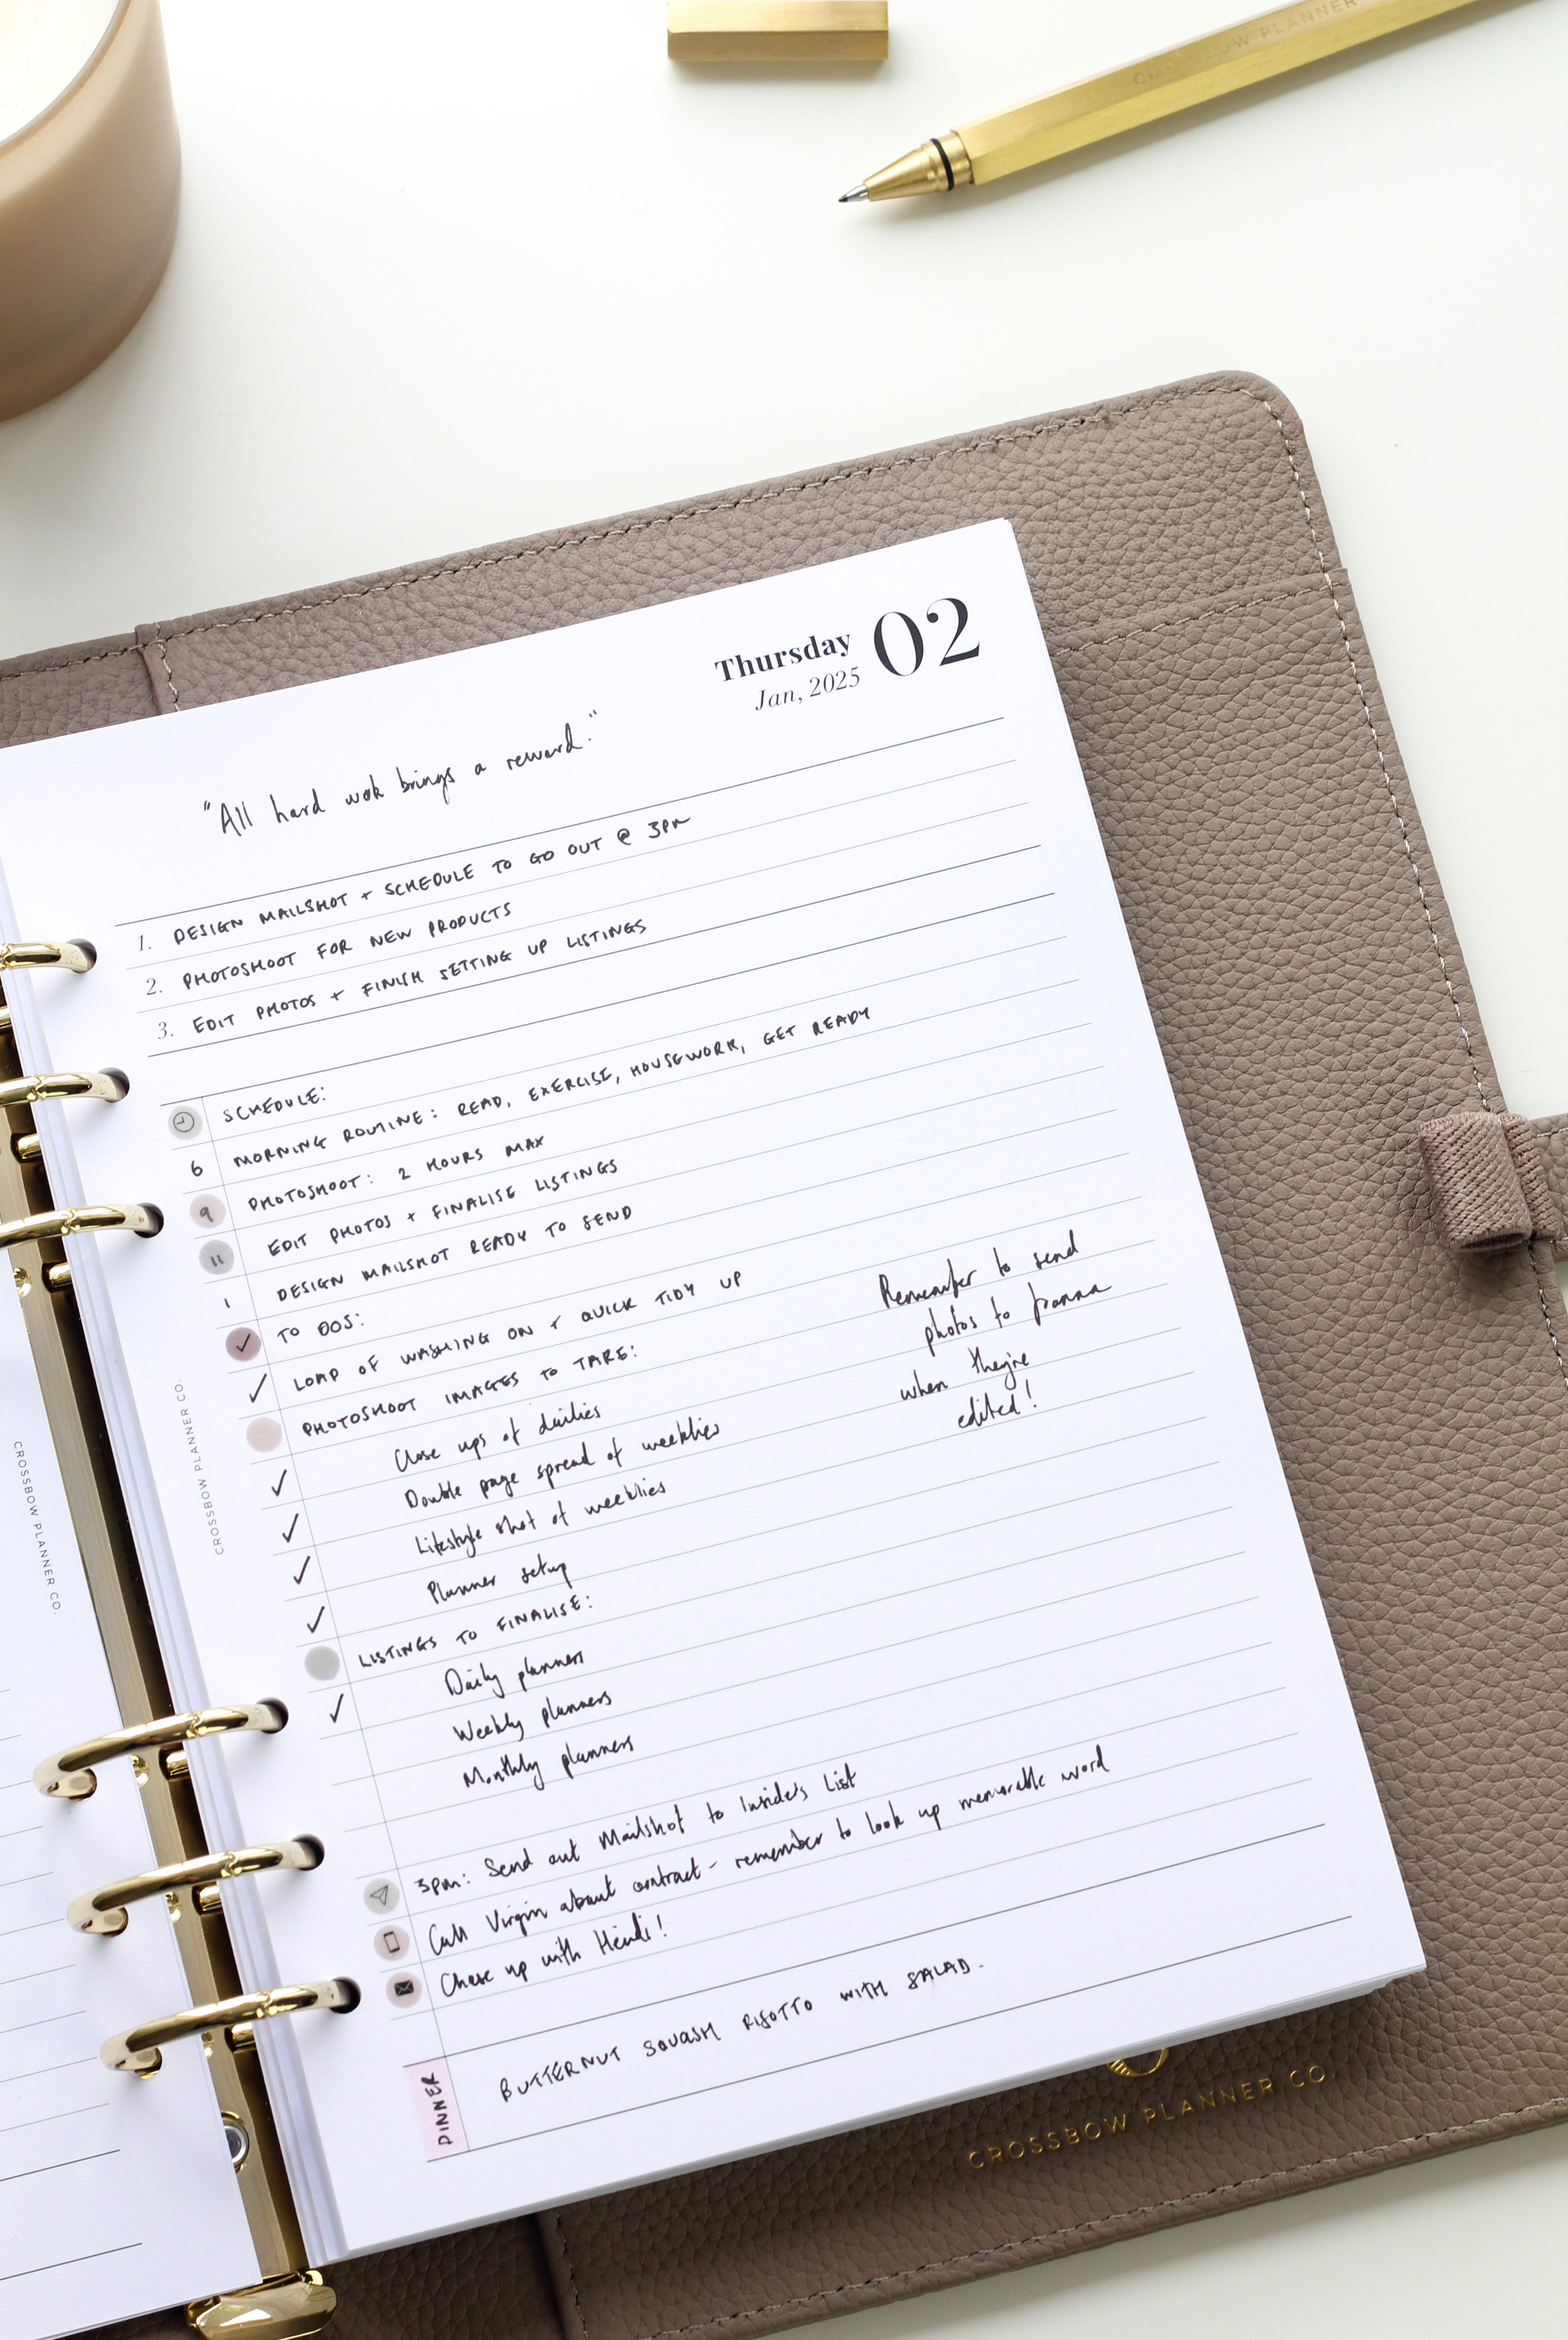 PLANNER
Thursday 02
Jan, 2025
"All hard wok brings a reward."
1. DESIGN MAILSHOT + SCHEDULE TO GO OUT @ 3PM
2. PHOTOSHOOT FOR NEW PRODUCTS
3. EDIT PHOTOS + FINISH SETTING UP LISTINGS
SCHEDULE:
6 MORNING ROUTINE: READ, EXERCISE, HOUSEWORK, GET READY
9 PHOTOSHOOT: 2 HOURS MAX
11 EDIT PHOTOS + FINALISE LISTINGS
1 DESIGN MAILSHOT READY TO SEND
✓ TO DOS:
✓ LOAD OF WASHING ON + QUICK TIDY UP
PHOTOSHOOT IMAGES TO TAKE:
✓ Close ups of dailies
✓ Double page spread of weeklies
✓ Lifestyle shot of weeklies
✓ Planner setup
LISTINGS TO FINALISE:
✓ Daily planners
Weekly planners
Monthly planners
Remember to send
photos to
when they're
edited!
3pm: Send out Mailshot to Insiders List
Call Virgin about contract - remember to look up memorable word
Chase up with Heidi!
DINNER
BUTTERNUT SQUASH RISOTTO WITH SALAD.
CROSSBOW PLANNER CO.
CROSSBOW PLANNER CO.
CROSSBOW PLANNER CO.